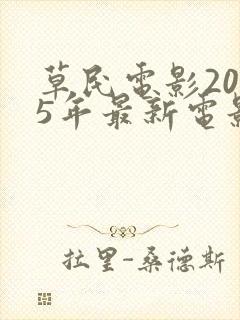 草民電影20
5年最新電影
拉里-桑德斯